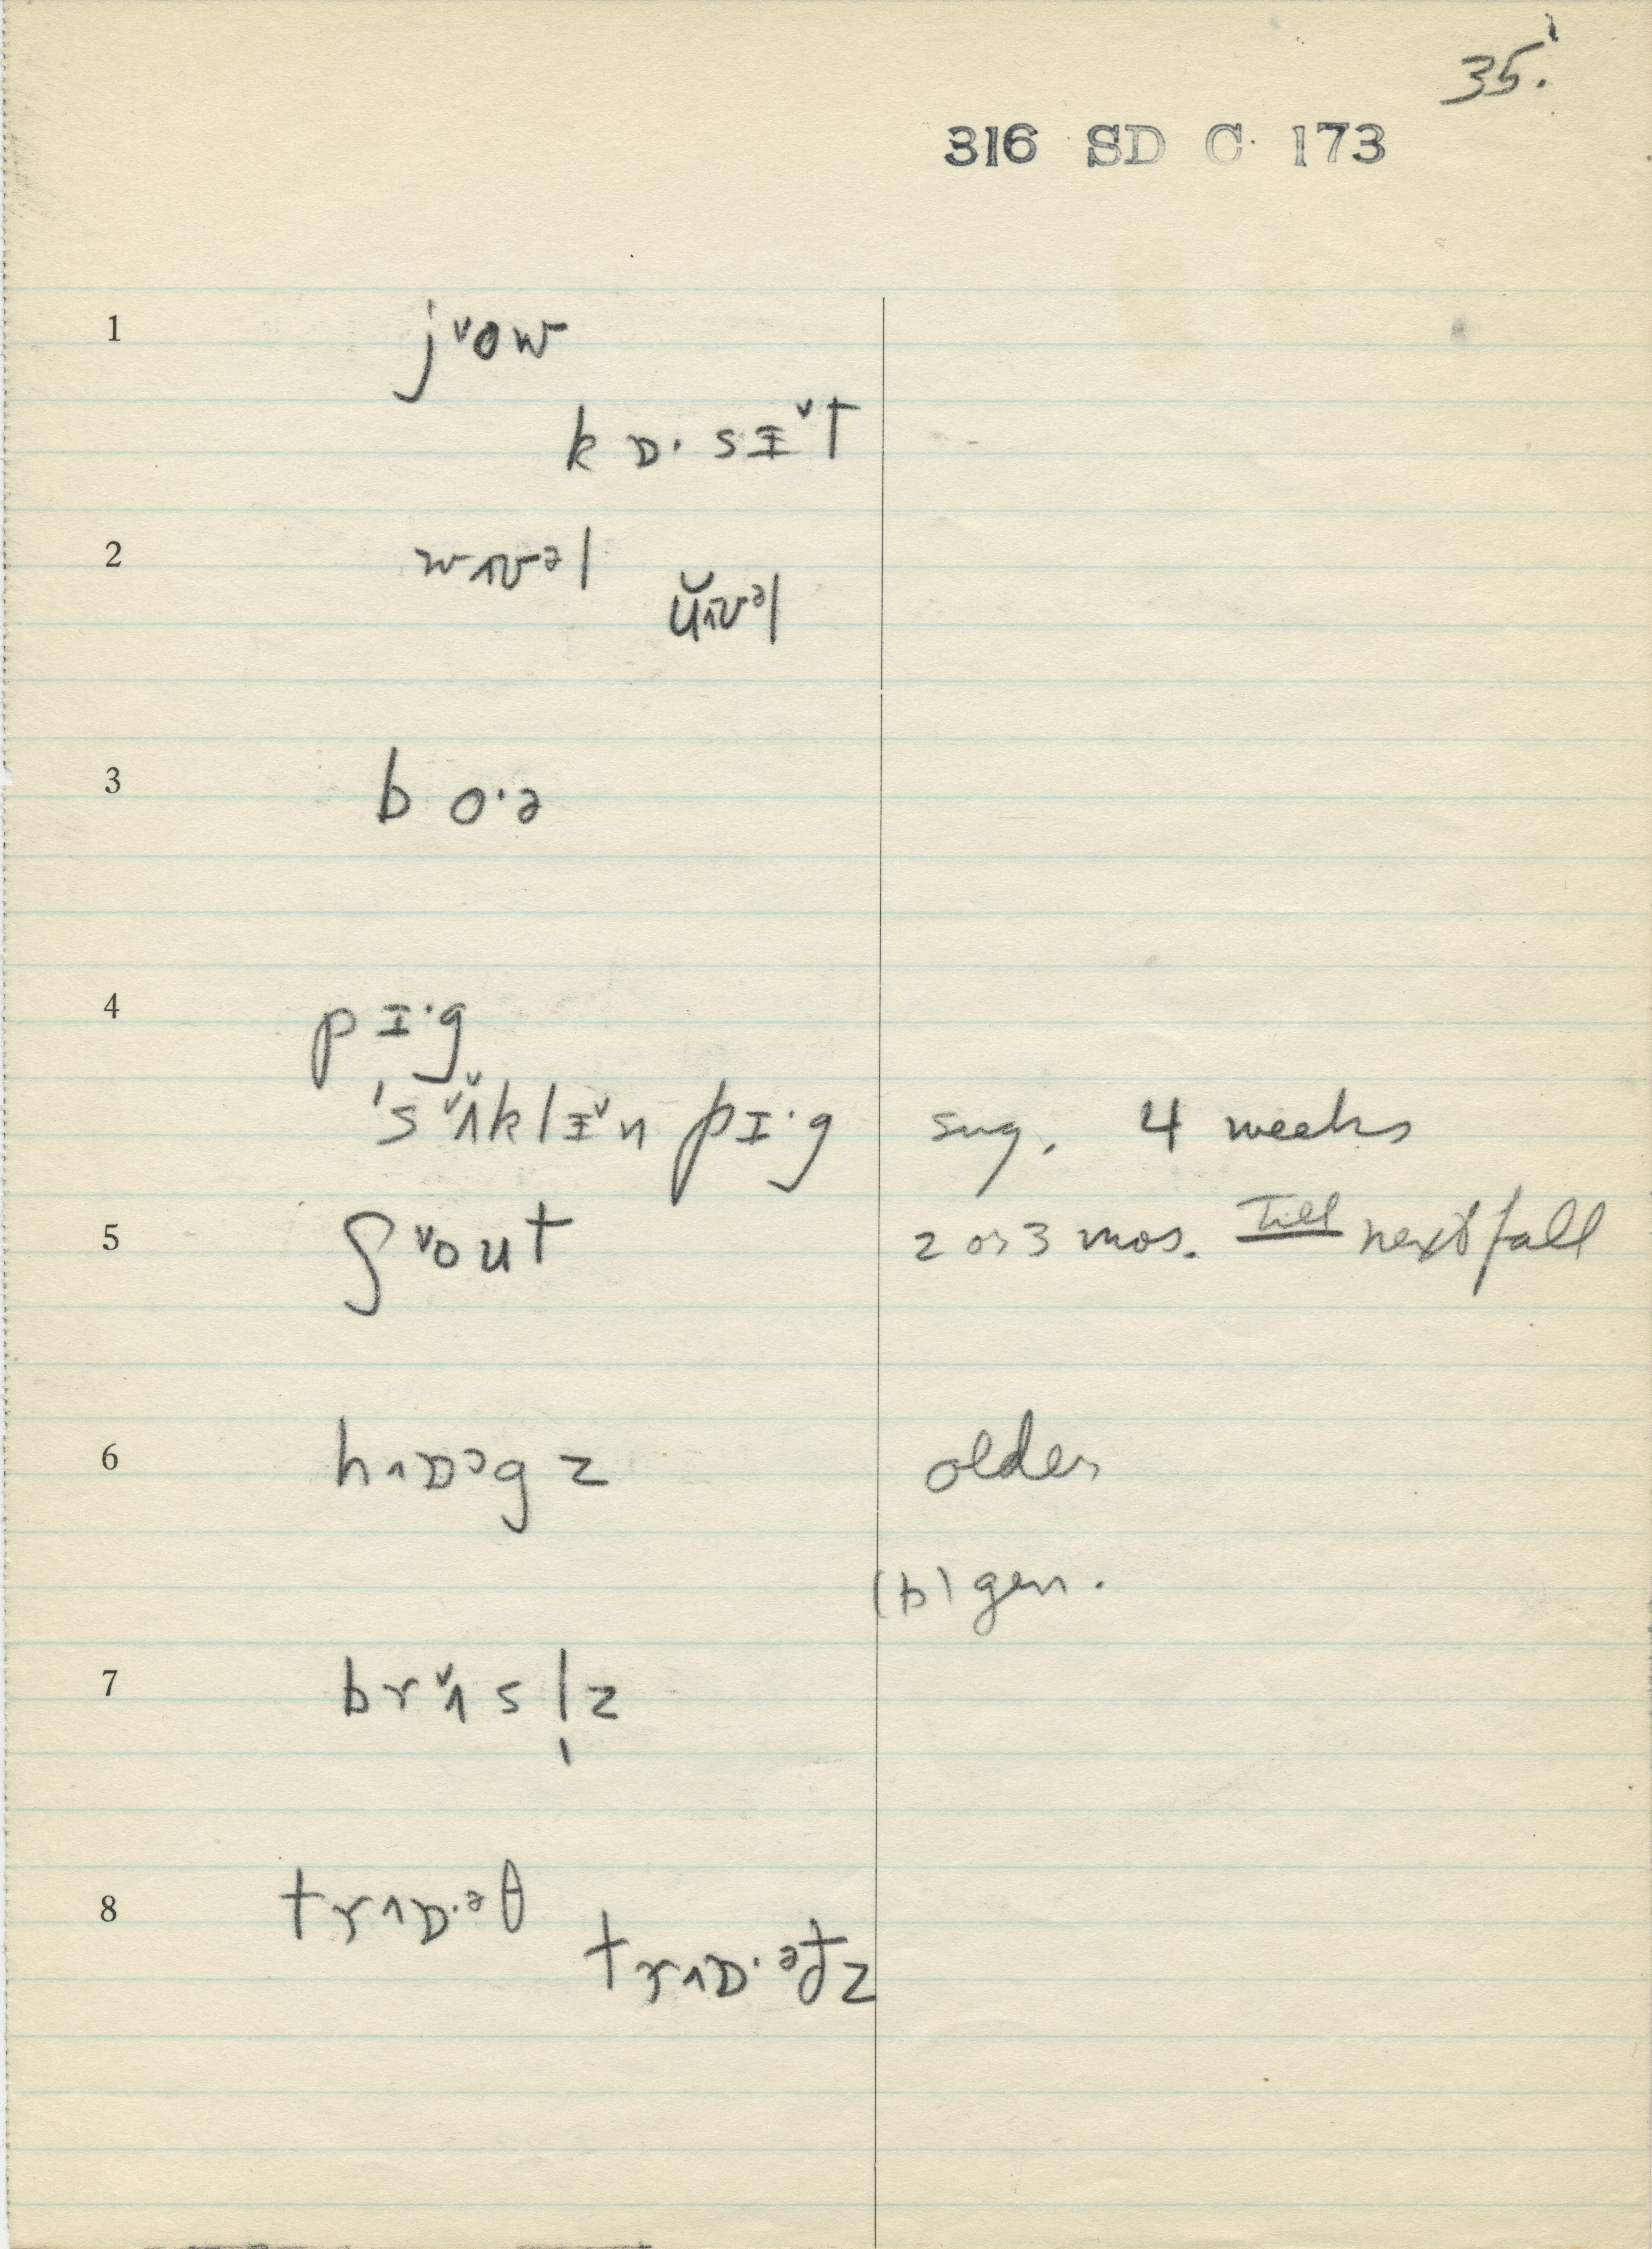 35.
316 SD C. 173
1 j˅ow
kɒ· sɪ˅t
2 w˄ʊᵊl
ŭ˄ʊᵊl
3 b o·ə
4 p ɪ·g
's˅ʌ̆klɪ˅n pɪ·g sug. 4 weeks
5 ʃ˅out 2 or 3 mos. Till next fall
6 h˄ɒᵊgz older
(b) gen.
7 br˅ʌsl̩z
8 tr˄ɒ·ᵊθ
tr˄ɒ·ᵊðz